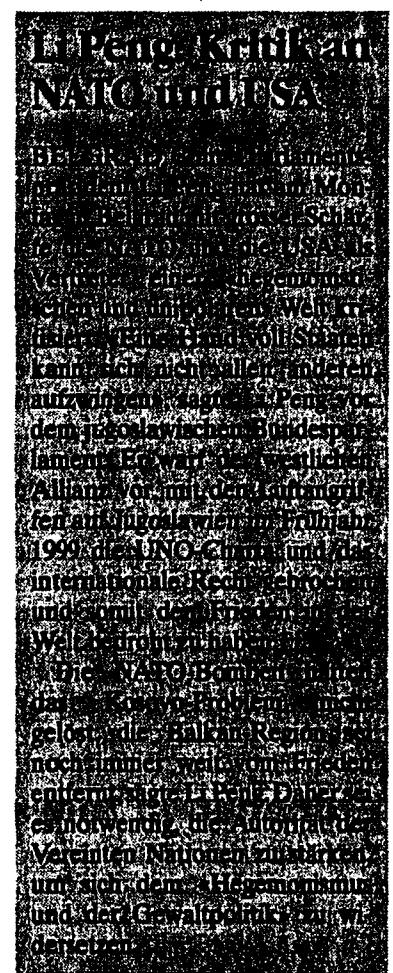 Li Peng: Kritik an
NATO und USA
BELGRAD Chinas Parlaments-
präsident Li Peng hat am Mon-
tag in Belgrad mit grosser Schär-
fe die NATO und die USA als
Vertreter einer hegemonisti-
schen und unipolaren Welt kri-
tisiert. «Eine Hand voll Staaten
kann sich nicht allen anderen
aufzwingen», sagte Li Peng vor
dem jugoslawischen Bundespar-
lament. Er warf der westlichen
Allianz vor, mit den Luftangrif-
fen auf Jugoslawien im Frühjahr
1999 die UNO-Charta und das
internationale Recht gebrochen
und somit den Frieden in der
Welt bedroht zu haben.
Die NATO-Bomben hätten
das Kosovo-Problem nicht
gelöst, die Balkan-Region sei
noch immer weit vom Frieden
entfernt, sagte Li Peng. Daher sei
es notwendig, die Autorität der
Vereinten Nationen zu stärken,
um sich dem «Hegemonismus
und der Gewaltpolitik» zu wi-
dersetzen.